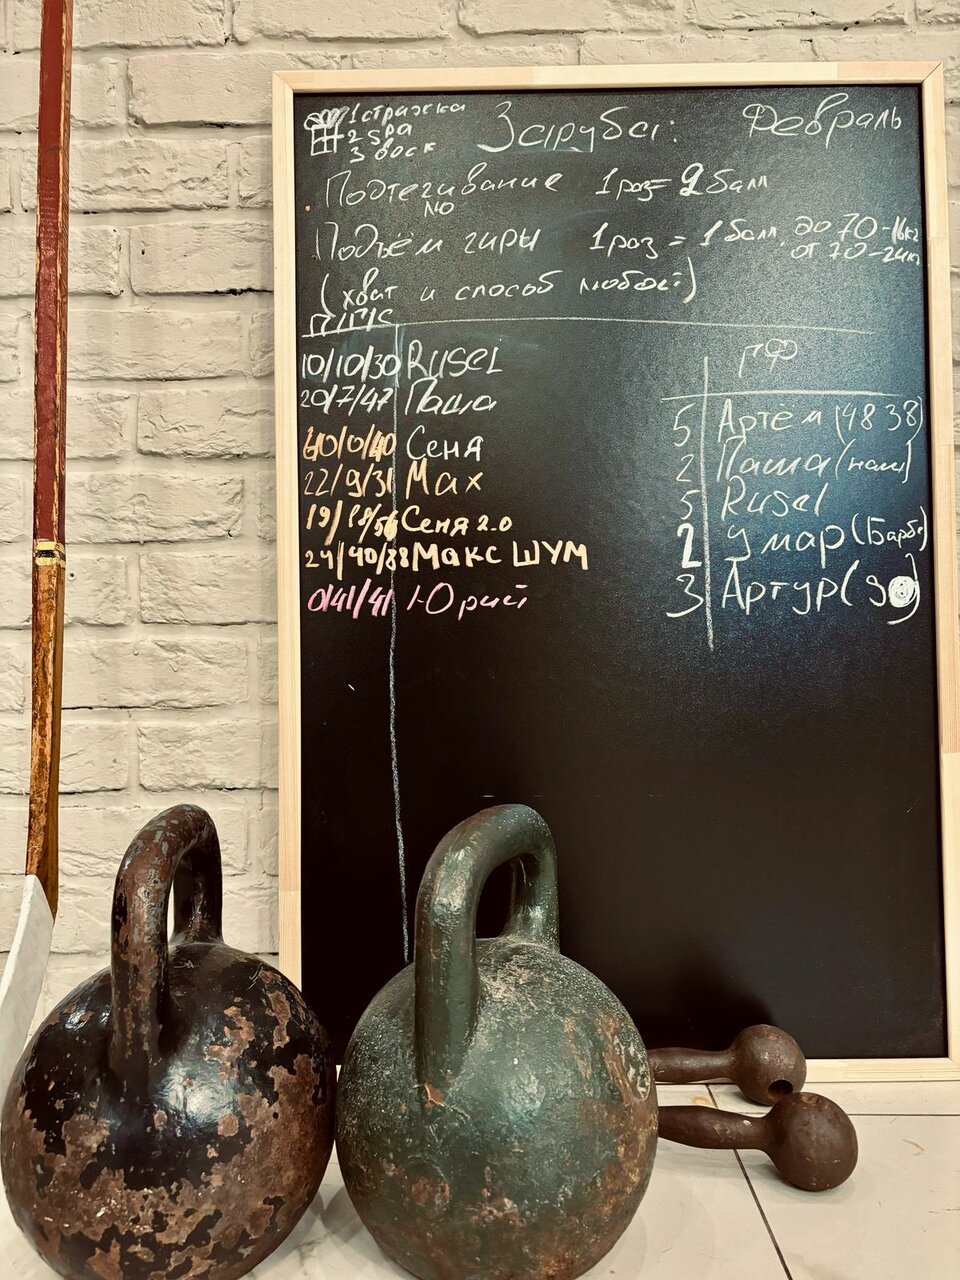 1 стрижка
2 spa
3 воск
Заруба: Февраль
Подтегивание 1 раз = 2 балл
Подъём гиры 1 раз = 1 балл до 70-16кг
от 70-24кг
(хват и способ любой)
П/Г/С
10/10/30 Rusel
20/7/47 Паша
40/0/40 Сеня
22/9/31 Max
Сеня 2.0
24/40/88 Макс ШУМ
0/41/41 Юрий
ГФ
5 Артём (48 38)
2 Паша (наш)
5 Rusel
2 Умар (Барбе)
3 Артур (